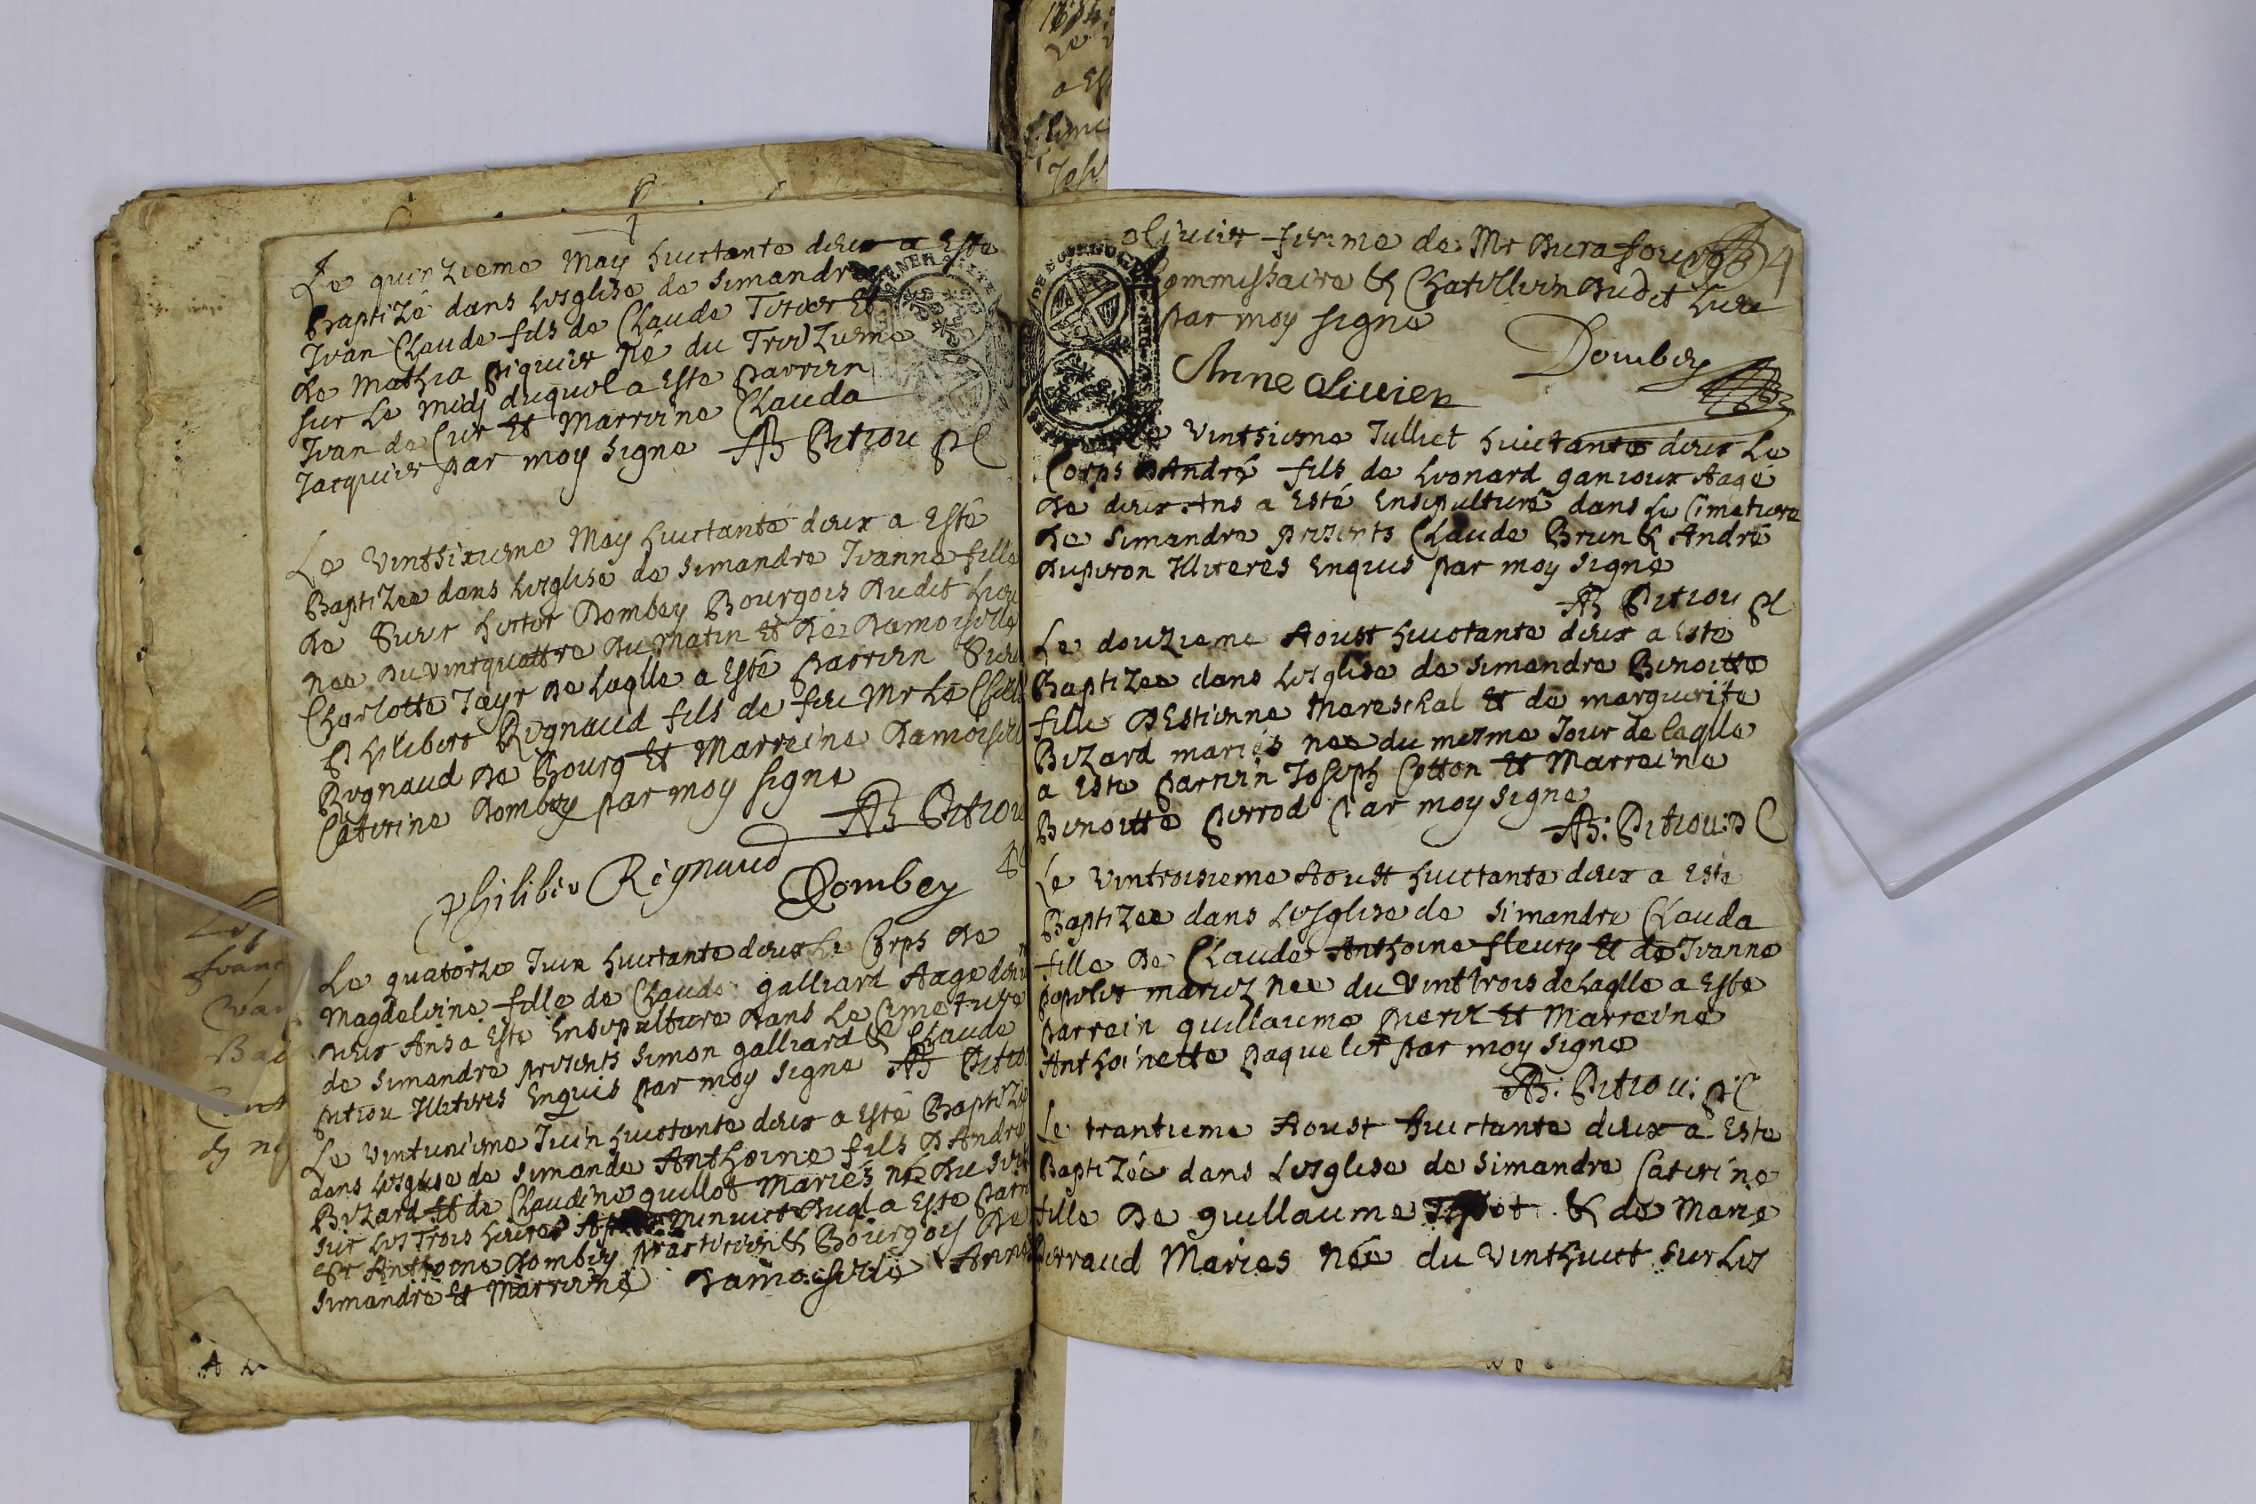 Le quinzieme May huictante deux a Esté
Baptizé dans Lesglise de Simandre
Jean Claude fils de Claude Tisier Et
de Mathia piquier né du Treizieme
sur Le midj duquel a Esté parrein
Jean de Cur Et Marreine Clauda
Jacquier par moy signe Ph Pitiou pC
Le Vintsixieme May huictante deux a Esté
Baptizee dans Lesglise de Simandre Jeanne fille
de Sieur hector Dombey Bourgois dudit Lieu
nee du vintquattre du matin Et de damoiselle
Charlotte Jayr de Laqlle a Esté parrein Sieur
Philibert Regnaud fils de feu Mr Le
Regnaud de Bourg Et Marreine Damoiselle
Caterine Dombey par moy signe
Ph Pitiou
Philiber Regnaud
Dombey
Le quatorze Juin huictante deux Le Corps de
Magdeleine fille de Claude galliard Aage
deux Ans a Esté Ensepulturé dans Le Cimetiere
de Simandre presents Simon galliard & Claude
pitiou Illiteres Enquis par moy signe Ph Pitiou
Le Vintunieme Juin huictante deux a Esté Baptizé
dans Lesglise de Simande Anthoine fils d André
Bizard Et de Claudine guillot Mariés né du
sur Les Trois heures Minuict duql a Esté
Sr Anthoine Dombey practicien & Bourgois de
Simandre Et Marreine Damoiselle Anne
4
olivier femme de Mr Durafour
Commissaire & Chatellein dudit Lieu
par moy signe
Dombey
Anne Olivier
Le Vinthieme Julliet huictante deux Le
Corps d André fils de Leonard ganioux Aagé
de deux Ans a Esté Ensepulturé dans Le Cimetiere
de Simandre presents Claude Brun & André
duperon Illiteres Enquis par moy signe
Ph Pitiou pC
Le douzieme Aoust huictante deux a Esté
Baptizee dans Lesglise de Simandre Benoitte
fille d Estienne Mareschal Et de marguerite
Bizard mariés nee du mesme Jour de laqlle
a Esté parrein Joseph Cotton Et Marreine
Benoitte perrod par moy signe
Ph: Pitiou: pC
Le Vintroisieme Aoust huictante deux a Esté
Baptizee dans Lesglise de Simandre Clauda
fille de Claude Anthoine fleury Et de Jeanne
mariez nee du Vinttrois de Laqlle a Esté
parrein guillaume Et Marreine
Anthoinette paquelet par moy signe
Ph: Pitiou: pC
Le trantieme Aoust huictante deux a Esté
Baptizée dans Lesglise de Simandre Caterine
fille de guillaume & de Marie
perraud Maries Née du Vinthuict sur Les